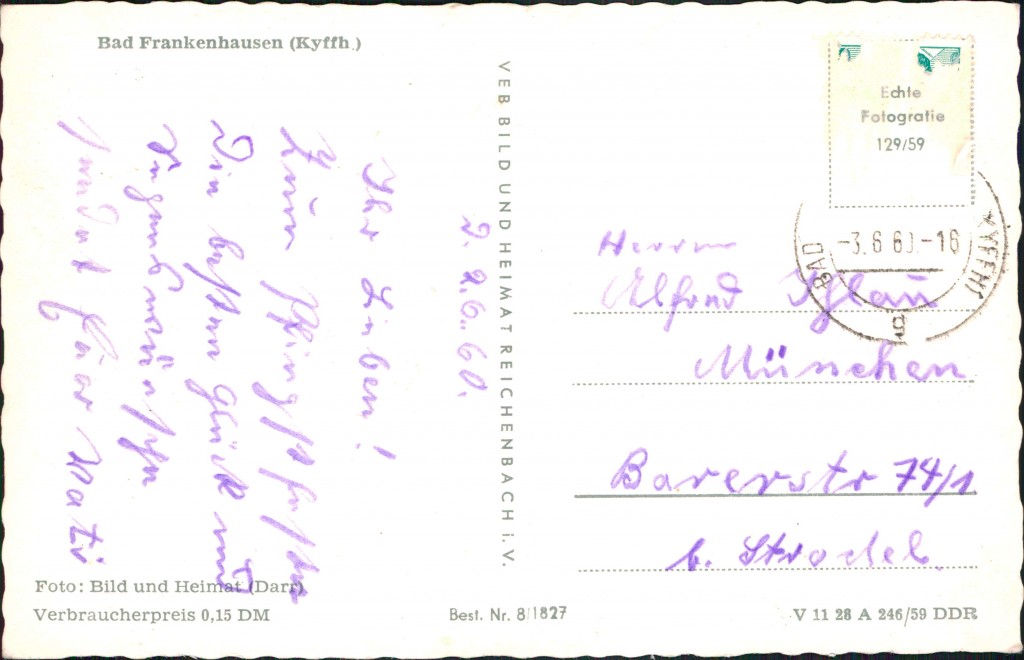 Bad Frankenhausen (Kyffh.)
Echte
Fotografie
129/59
BAD
KYFFH
-3.6.60.-16
g
VEB BILD UND HEIMAT REICHENBACH i. V.
D. 2.6.60.
Ihr Lieben!
Zum Pfingstfeste
Die besten Glück und
Segenswünsche
sendet Euer Vati
Herrn
Alfred
München
Barerstr 74/1
b. Strodel.
Foto: Bild und Heimat (Darr)
Verbraucherpreis 0,15 DM
Best. Nr. 8/1827
V 11 28 A 246/59 DDR